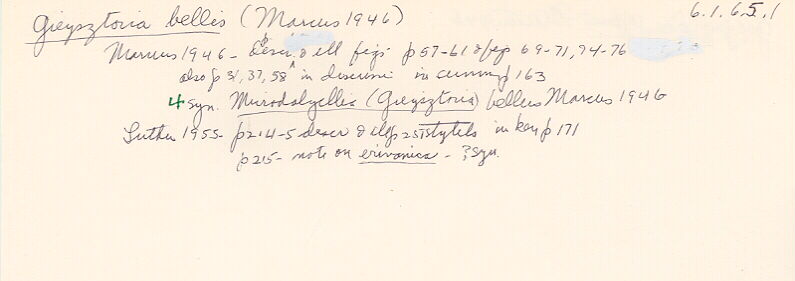 Gieysztoria bellis (Marcus 1946)
6.1.6.5.1
Marcus 1946 - descr. & ill figs p57-61 & figs 69-71, 74-76
also p 31, 37, 58 in discussn in p 163
4 syn. Microdalyellia (Gieysztoria) bellis Marcus 1946
Luther 1955 - p214-5 descr & ill stylets in key p 171
p215 - note on erivanica - ? syn.